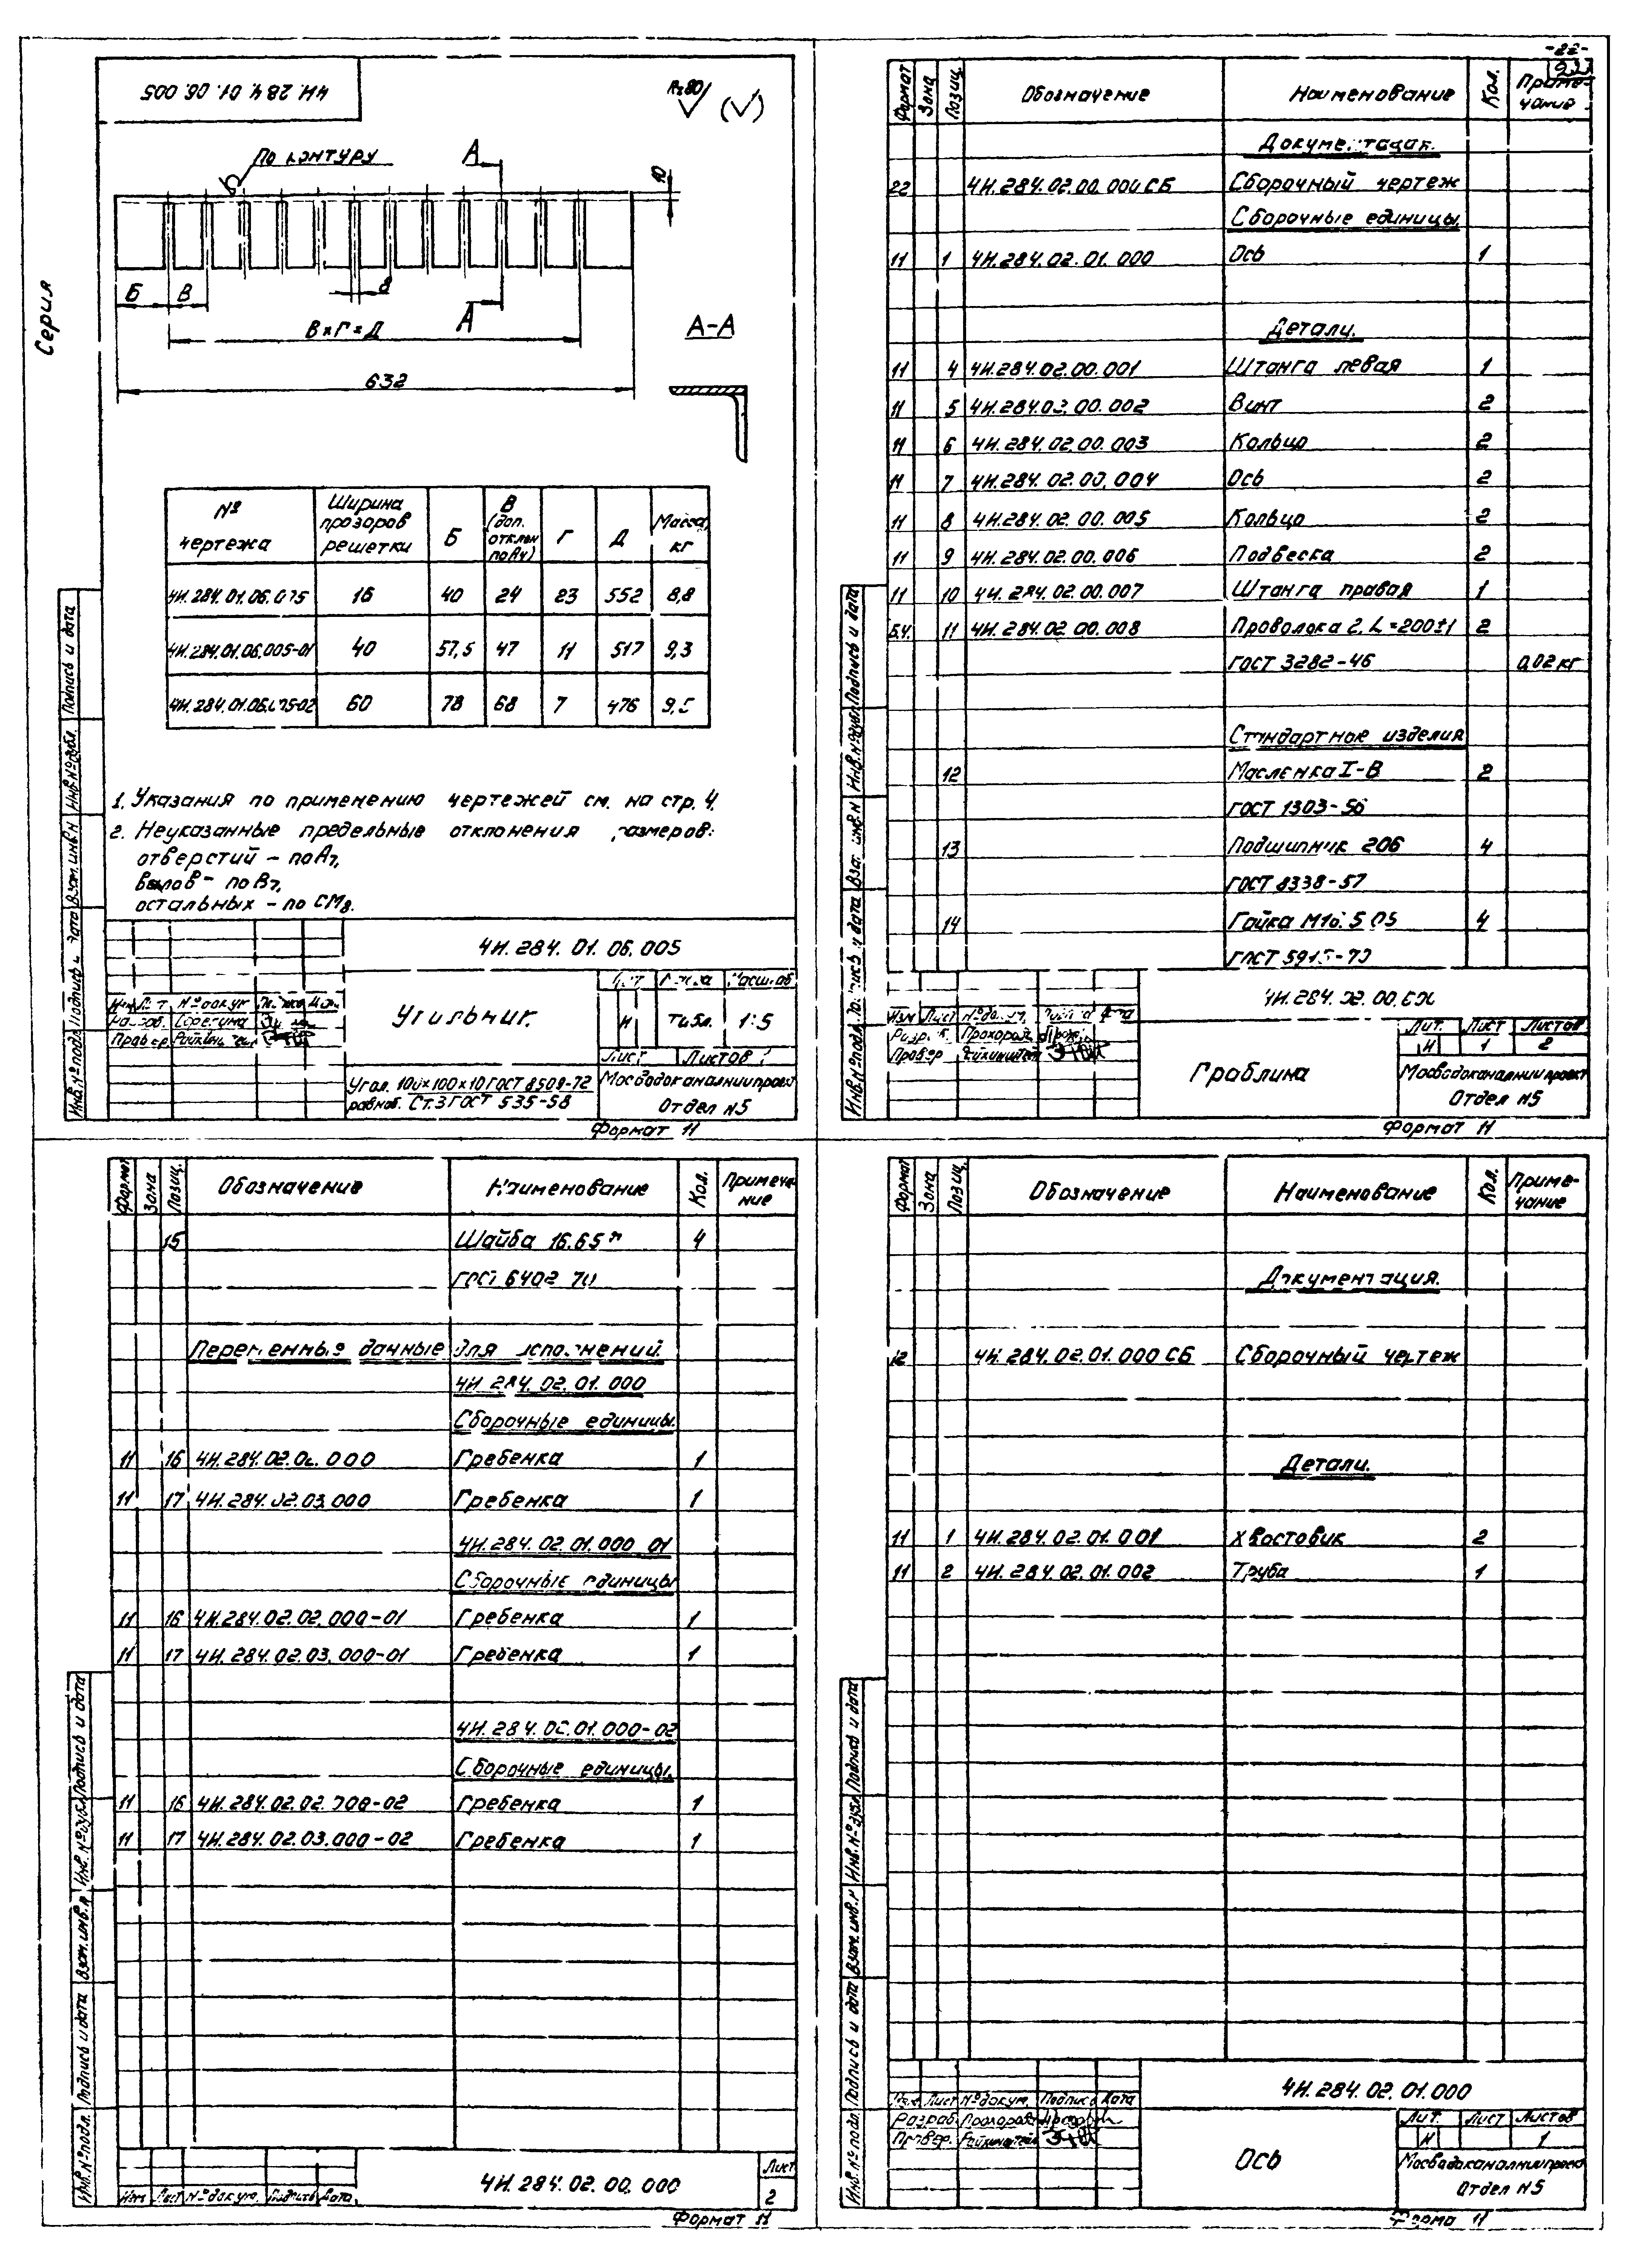 -22-
Серия
4И.284.01.06.005
Rz80
По контуру
А
10
Б
В
8
А
В×Г=Д
А-А
632
№ чертежа | Ширина прозоров решетки | Б | В (доп. отклон по А4) | Г | Д | Масса, кг
4И.284.01.06.005 | 16 | 40 | 24 | 23 | 552 | 8,8
4И.284.01.06.005-01 | 40 | 57,5 | 47 | 11 | 517 | 9,3
4И.284.01.06.005-02 | 60 | 78 | 68 | 7 | 476 | 9,5
1. Указания по применению чертежей см. на стр. 4.
2. Неуказанные предельные отклонения размеров:
отверстий - по А7,
валов - по В7,
остальных - по СМ8.
4И.284.01.06.005
Угольник.
Лит
Масса
Масштаб
И
Табл.
1:5
Лист
Листов
Угол. 100×100×10 ГОСТ 8509-72
равноб. Ст.3 ГОСТ 535-58
Мосводоканалниипроект
Отдел N5
Формат 11
Инв.№ подл.
Подпись и дата
Взам.инв.N
Инв.№ дубл.
Подпись и дата
Формат | Зона | Позиц. | Обозначение | Наименование | Кол. | Примечание
Документация.
22 | 4И.284.02.00.000 СБ | Сборочный чертеж
Сборочные единицы.
11 | 1 | 4И.284.02.01.000 | Ось | 1
Детали.
11 | 4 | 4И.284.02.00.001 | Штанга левая | 1
11 | 5 | 4И.284.03.00.002 | Винт | 2
11 | 6 | 4И.284.02.00.003 | Кольцо | 2
11 | 7 | 4И.284.02.00.004 | Ось | 2
11 | 8 | 4И.284.02.00.005 | Кольцо | 2
11 | 9 | 4И.284.02.00.006 | Подвеска | 2
11 | 10 | 4И.284.02.00.007 | Штанга правая | 1
Б.ч. | 11 | 4И.284.02.00.008 | Проволока 2, L=200±1 | 2
ГОСТ 3282-46 | 0,02 кг
Стандартные изделия
12 | Масленка I-В | 2
ГОСТ 1303-56
13 | Подшипник 206 | 4
ГОСТ 8338-57
14 | Гайка М16. 5.05 | 4
ГОСТ 5915-70
4И.284.02.00.000
Изм Лист № докум. Подпись Дата
Разраб. Прохорова
Провер
Граблина
Лит. | Лист | Листов
И | 1 | 2
Мосводоканалниипроект
Отдел N5
Формат 11
Формат | Зона | Позиц. | Обозначение | Наименование | Кол. | Примечание
15 | Шайба 16.65Г | 4
ГОСТ 6402-70
Переменные данные для исполнений.
4И.284.02.01.000
Сборочные единицы.
11 | 16 | 4И.284.02.02.000 | Гребенка | 1
11 | 17 | 4И.284.02.03.000 | Гребенка | 1
4И.284.02.01.000-01
Сборочные единицы
11 | 16 | 4И.284.02.02.000-01 | Гребенка | 1
11 | 17 | 4И.284.02.03.000-01 | Гребенка | 1
4И.284.02.01.000-02
Сборочные единицы.
11 | 16 | 4И.284.02.02.000-02 | Гребенка | 1
11 | 17 | 4И.284.02.03.000-02 | Гребенка | 1
Изм Лист № докум. Подпись Дата
4И.284.02.00.000
Лист
2
Формат 11
Формат | Зона | Позиц. | Обозначение | Наименование | Кол. | Примечание
Документация.
12 | 4И.284.02.01.000 СБ | Сборочный чертеж
Детали.
11 | 1 | 4И.284.02.01.001 | Хвостовик | 2
11 | 2 | 4И.284.02.01.002 | Труба | 1
4И.284.02.01.000
Изм. Лист № докум. Подпись Дата
Разраб. Прохорова
Провер.
Ось
Лит. | Лист | Листов
И | 1
Мосводоканалниипроект
Отдел N5
Формат 11